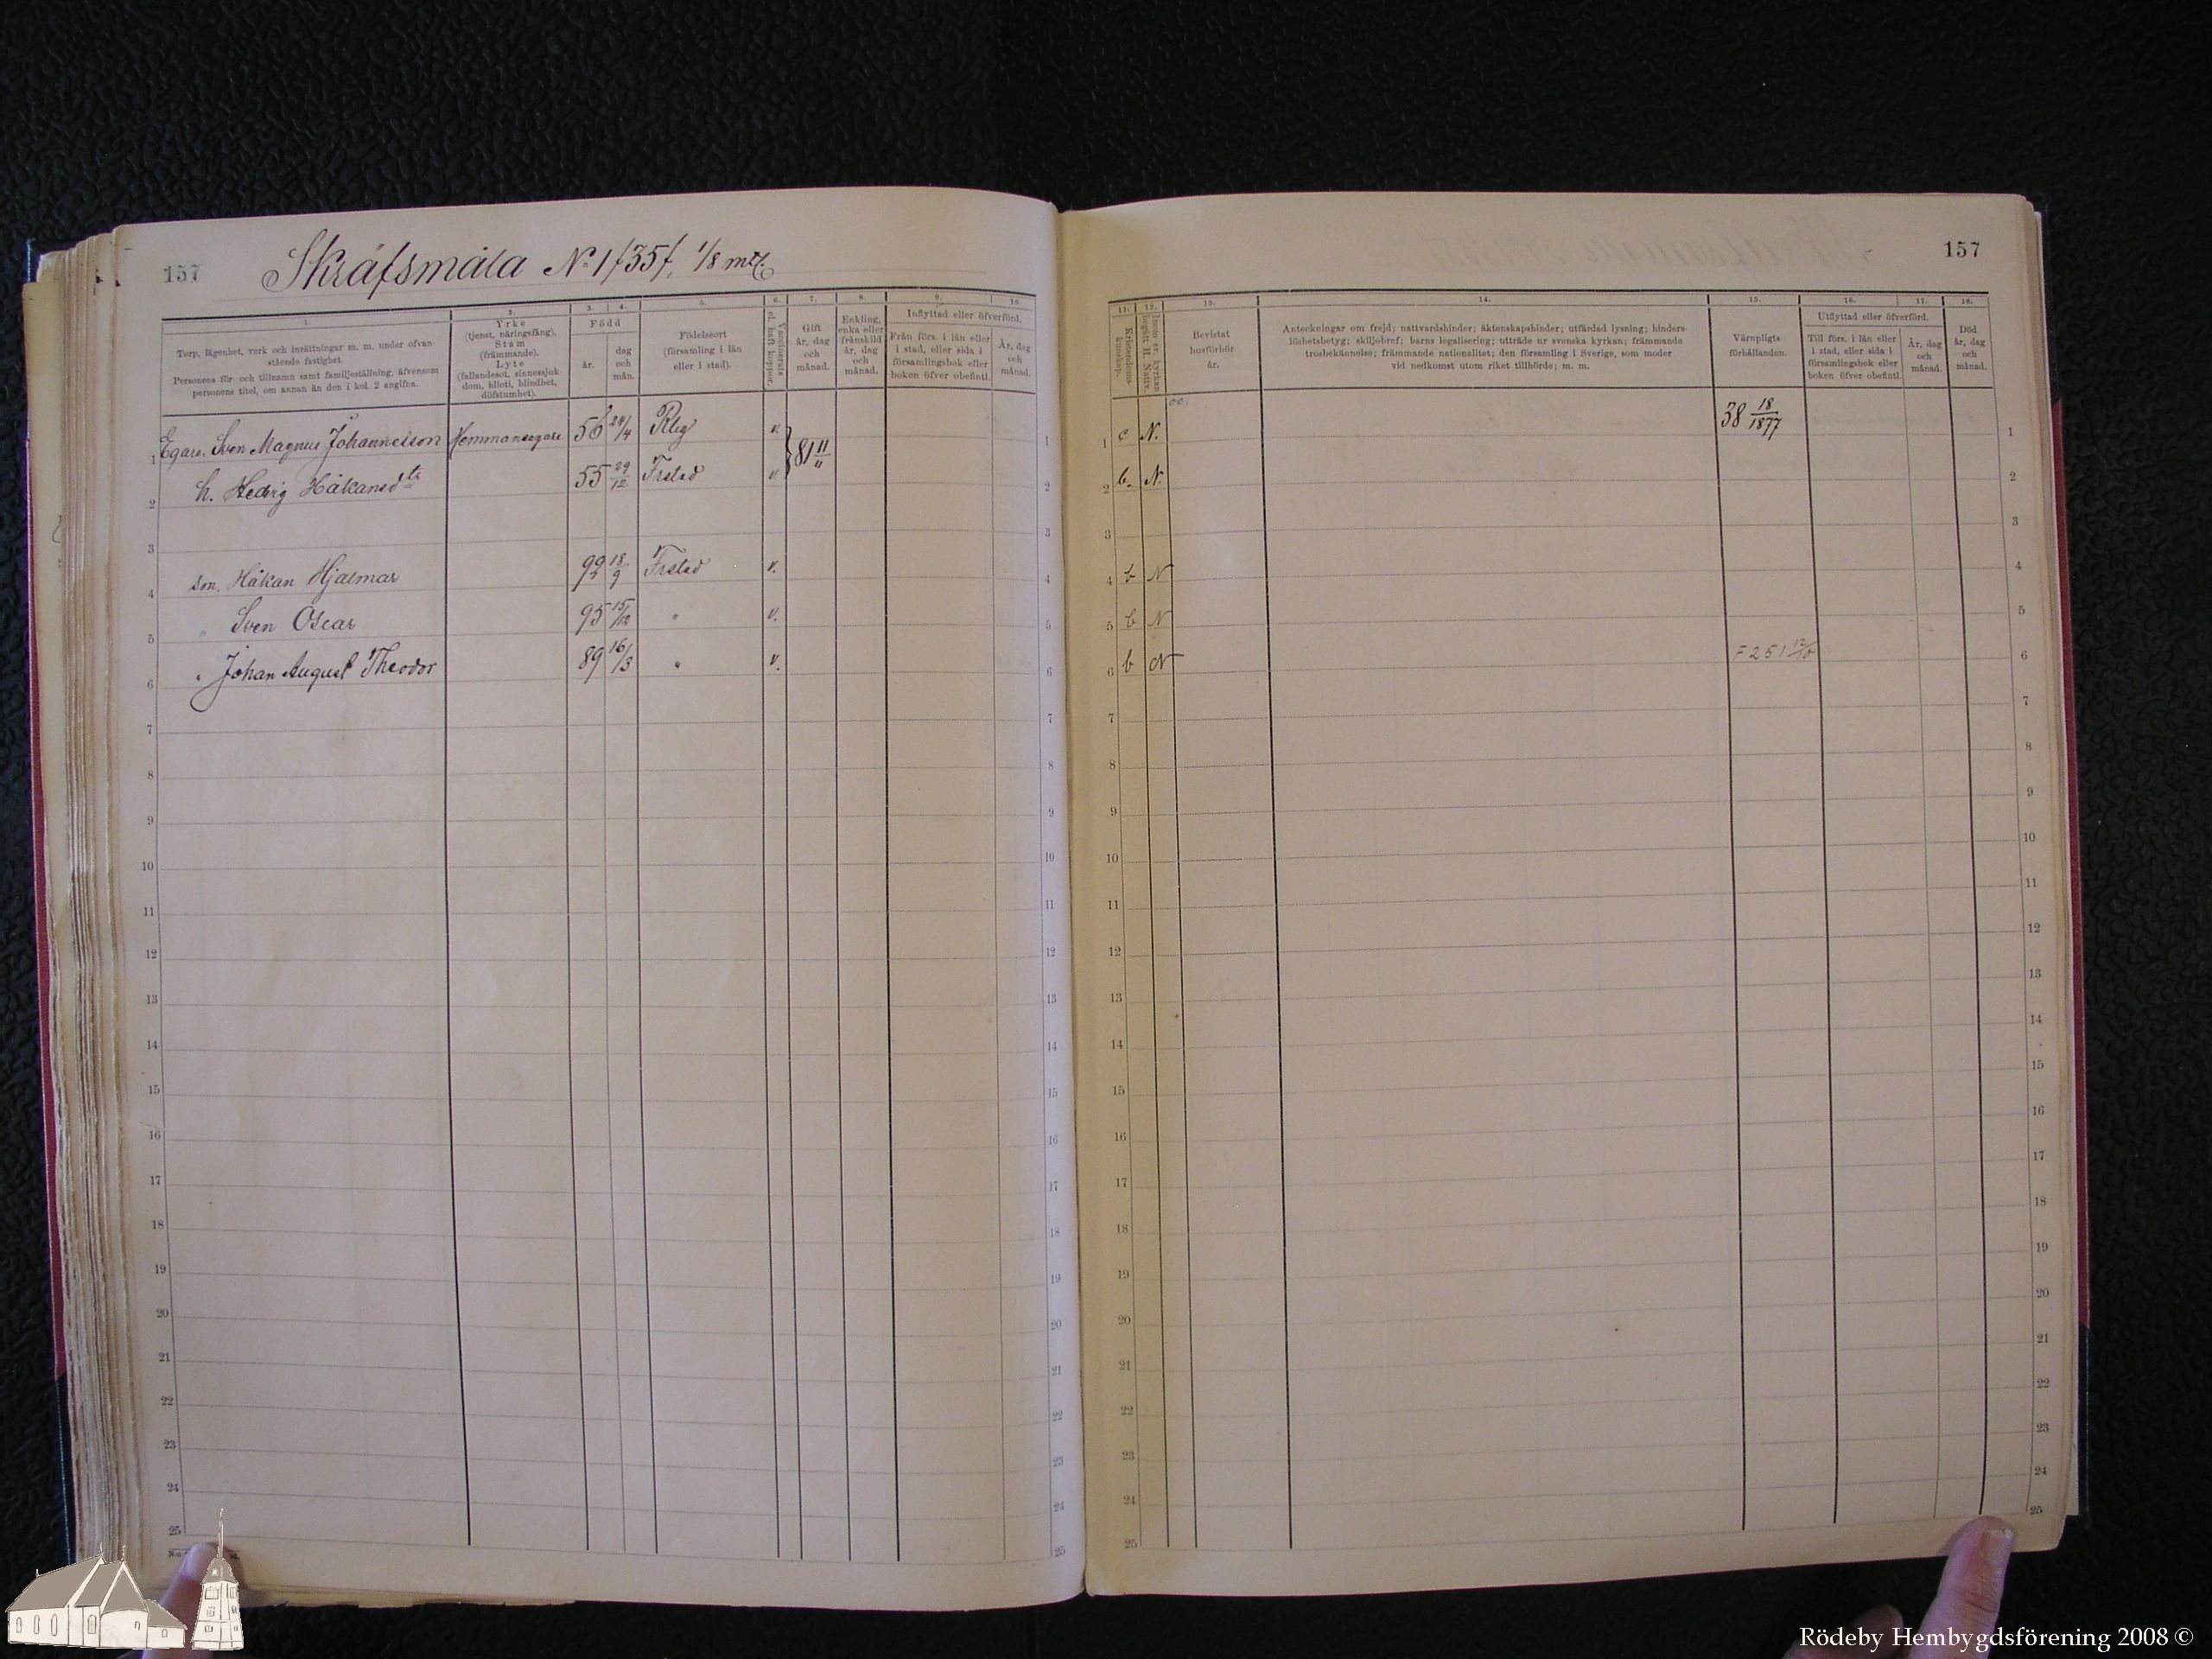 157
Skräfsmåla No 1 /35/, 1/8 mtl.
1.
Torp, lägenhet, verk och inrättningar m. m. under ofvan-
stående fastighet.
Personens för- och tillnamn samt familjeställning, äfvensom
personens titel, om annan än den i kol. 2 angifna.
2.
Yrke
(tjenst, näringsfång).
Stam
(främmande).
Lyte
(fallandesot, sinnessjuk-
dom, idioti, blindhet,
döfstumhet).
3. 4.
Född
år.
dag
och
mån.
5.
Födelseort
(församling i län
eller i stad).
6.
Vaccinerats
el. haft koppor.
7.
Gift
år, dag
och
månad.
8.
Enkling,
enka eller
frånskild
år, dag
och
månad.
9. 10.
Inflyttad eller öfverförd.
Från förs. i län eller
i stad, eller sida i
församlingsbok eller
boken öfver obefintl.
År, dag
och
månad.
1 Egare. Sven Magnus Johannesson Hemmansegare 56 24/4 Rby v. } 81 11/11 1
2 h. Hedvig Håkansdtr 55 29/12 Frstad v 2
3 3
4 son. Håkan Hjalmar 92 18/9 Frstad v. 4
5 " Sven Oscar 95 15/12 " v. 5
6 " Johan August Theodor 89 16/3 " v. 6
7 7
8 8
9 9
10 10
11 11
12 12
13 13
14 14
15 15
16 16
17 17
18 18
19 19
20 20
21 21
22 22
23 23
24 24
25 25
157
11.
Kristendoms-
kunskap.
12.
Inom sv. kyrkan
begått H. Nattv.
13.
Bevistat
husförhör
år.
14.
Anteckningar om frejd; nattvardshinder; äktenskapshinder; utfärdad lysning; hinders-
löshetsbetyg; skiljobref; barns legalisering; utträde ur svenska kyrkan; främmande
trosbekännelse; främmande nationalitet; den församling i Sverige, som moder
vid nedkomst utom riket tillhörde; m. m.
15.
Värnpligts-
förhållanden.
16. 17.
Utflyttad eller öfverförd.
Till förs. i län eller
i stad, eller sida i
församlingsbok eller
boken öfver obefintl.
År, dag
och
månad.
18.
Död
år, dag
och
månad.
1 c N. 38 18/1877 1
2 b. N. 2
3 3
4 b N 4
5 b N 5
6 b N F 251 6
7 7
8 8
9 9
10 10
11 11
12 12
13 13
14 14
15 15
16 16
17 17
18 18
19 19
20 20
21 21
22 22
23 23
24 24
25 25
Rödeby Hembygdsförening 2008 ©